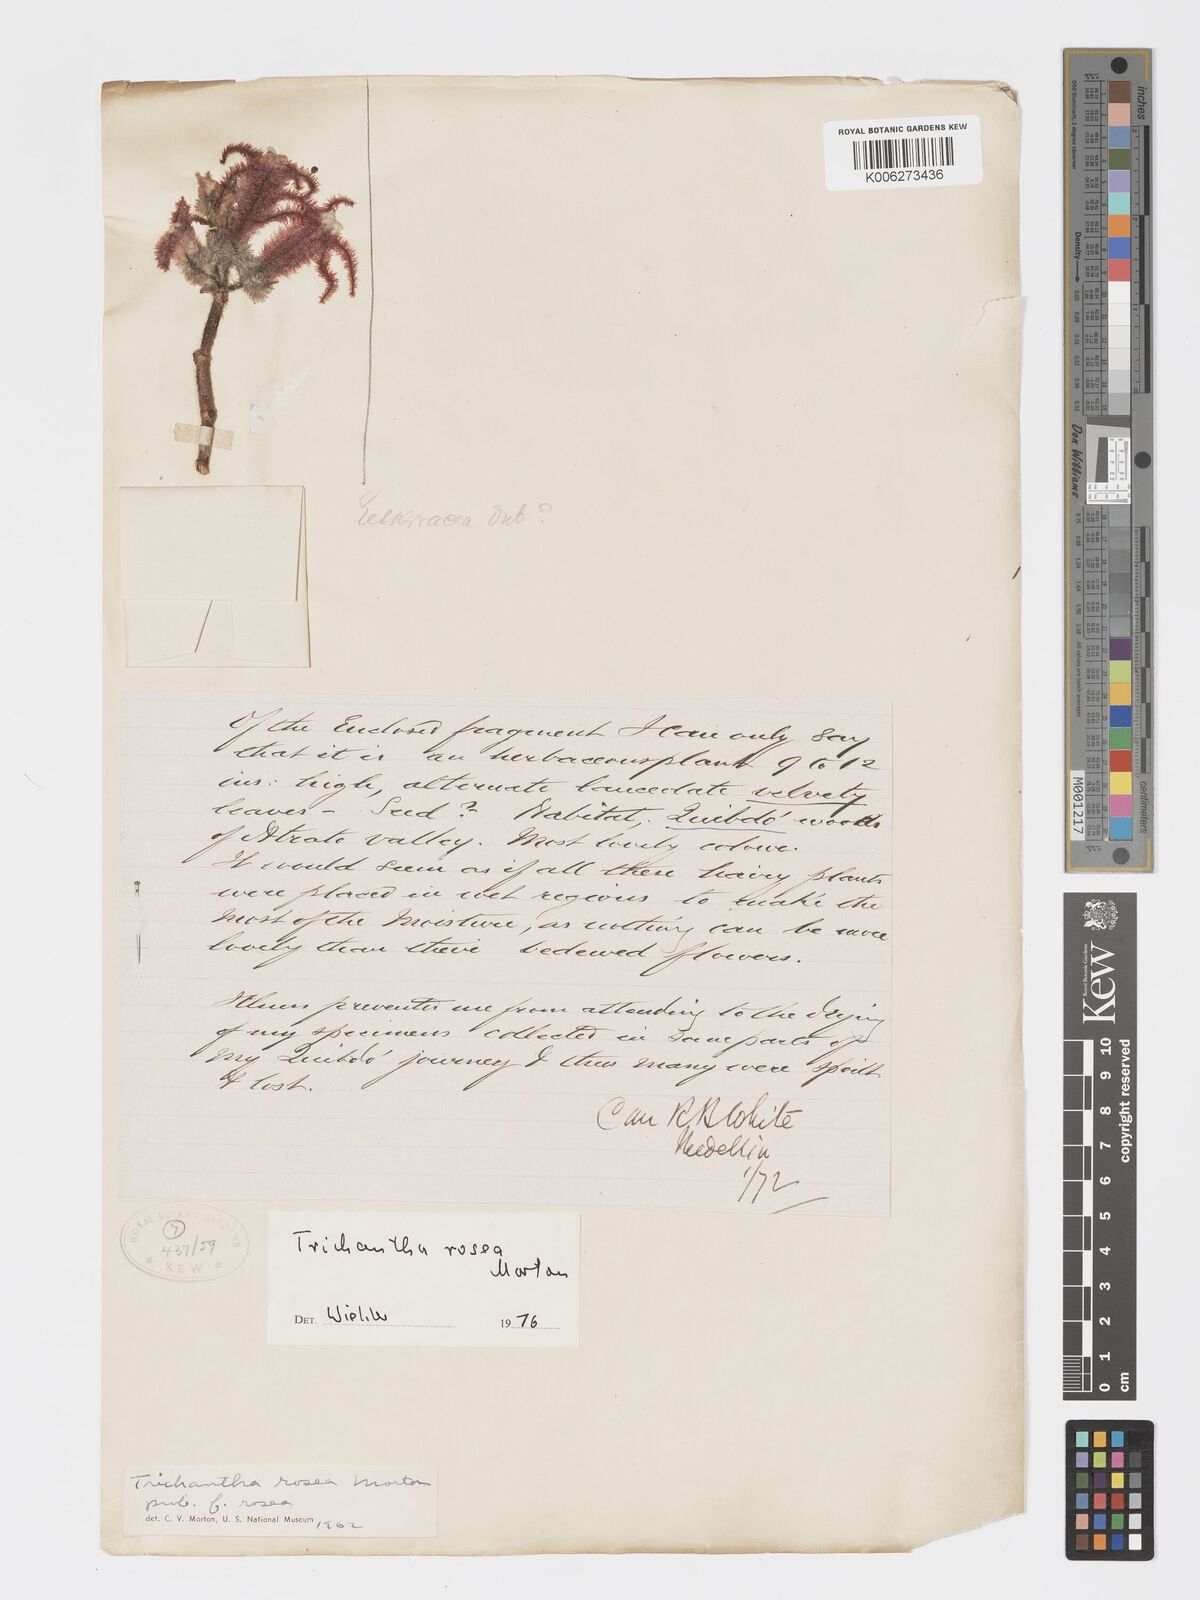 ROYAL BOTANIC GARDENS KEW
K006273436
Gesneracea Dub?
Of the Enclosed fragment I can only say
that it is an herbaceous plant 9 to 12
ins: high, alternate lancedate velvety
leaves - Seed? Habitat, Quibdó woods
of Atrato valley. Most lovely colour.
It would seem as if all these hairy plants
were placed in wet regions to make the
most of the moisture, as nothing can be more
lovely than their bedewed flowers.
Illness prevented me from attending to the drying
of my specimens collected in some parts of
my Quibdó journey & thus many were spoilt
& lost.
R B White
Medellin
1/72
ROYAL BOTANIC GARDENS
7
437/59
KEW
Trichantha rosea
Morton
DET. Wiehler 1976
Trichantha rosea Morton
prob. f. rosea
det. C. V. Morton, U. S. National Museum 1962
inches
centimeters
Density
Don Williams
M001217
KEW
Royal Botanic Gardens
copyright reserved
0 1 2 3 4 5 6 7 8 9 10
cm